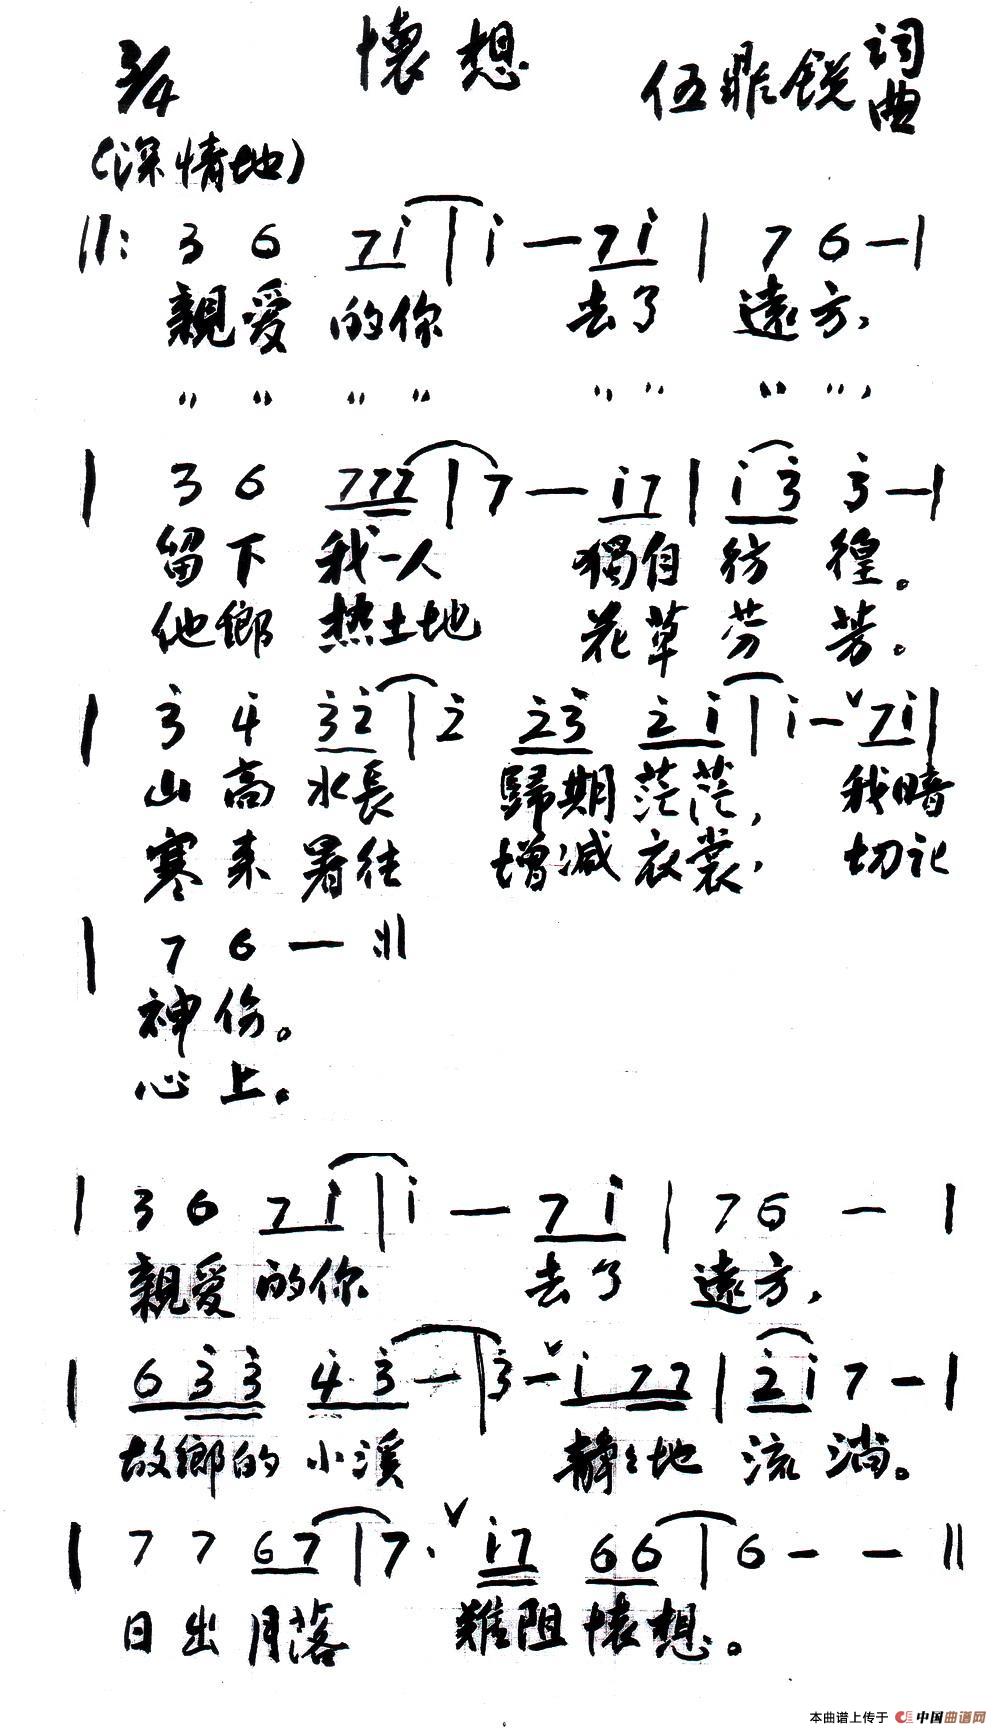 懷想
3/4
伍飛銳 詞曲
(深情地)
||: 3 6 7i | i — 7i | 7 6 — |
親愛的你 去了 遠方，
〃 〃 〃 〃 〃 〃 〃 〃，
| 3 6 777 | 7 — i7 | i3 3 — |
留下 我一人 獨自 彷徨。
他鄉 热土地 花草 芬芳。
| 3 4 32 | 2 23 2i | i — ∨ 7i |
山高水長 歸期茫茫， 我暗
寒来暑往 增减衣裳， 切记
| 7 6 — :||
神伤。
心上。
| 3 6 7i | i — 7i | 76 — |
親愛的你 去了 遠方，
| 633 43 — | 3 — ∨ i77 | 2i 7 — |
故鄉的小溪 静々地 流淌。
| 7 7 67 | 7 · ∨ i7 66 | 6 — — ||
日出月落 難阻懷想。
本曲谱上传于 中国曲谱网